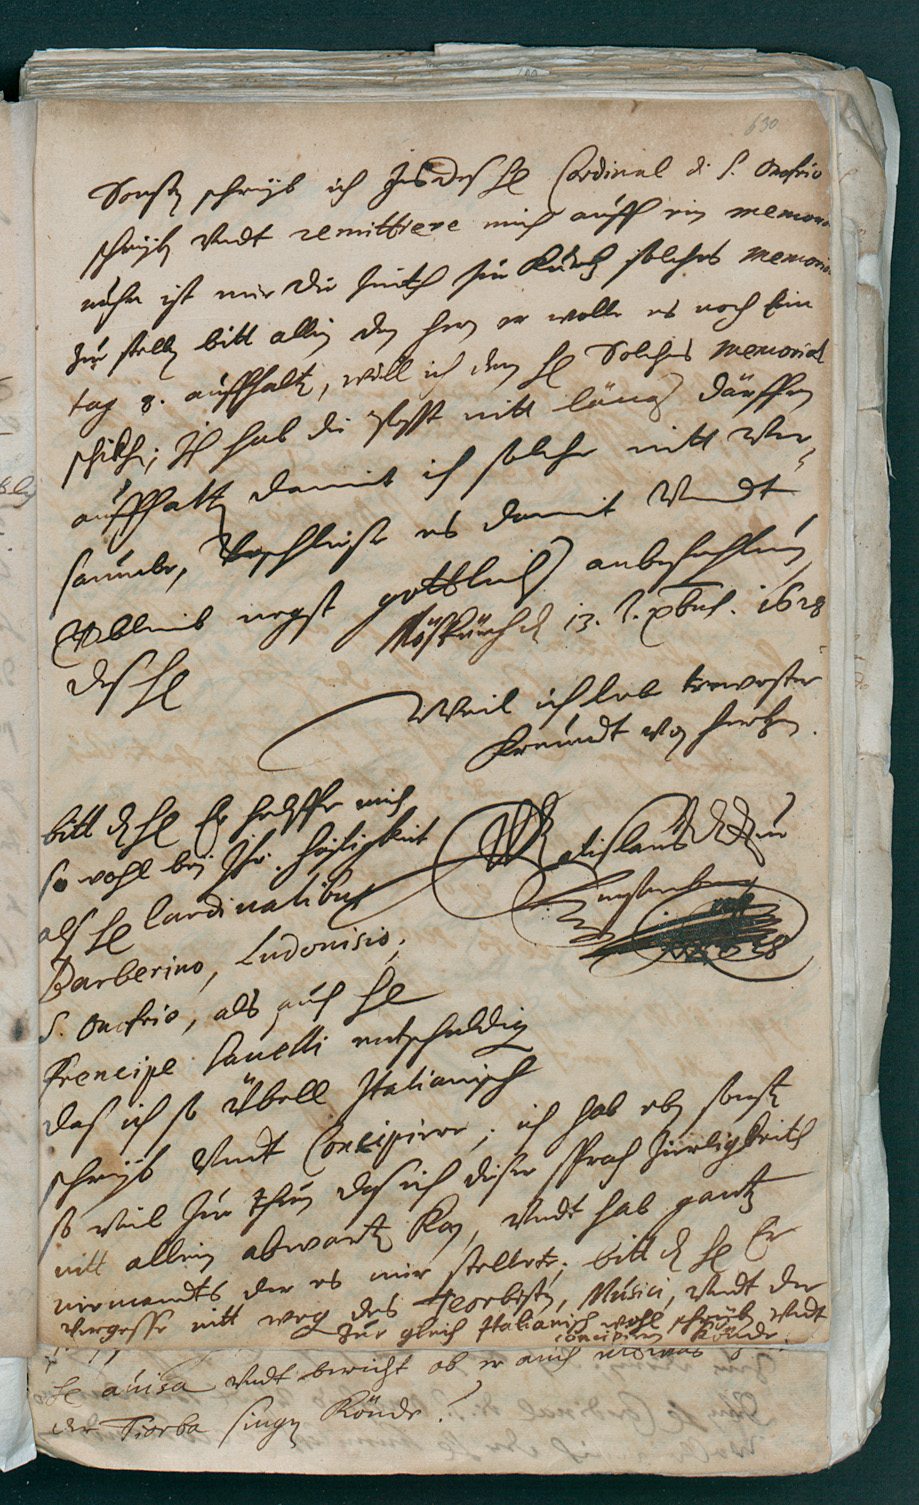 630
Sonsten schreib ich Ins des H Cardinal di S. Onofrio
schreiben Undt remittiere mich auff ein memori
nuhn ist mir die Zeith zu Kurtz solches memori
zue stellen bitt allein den herren er wolle es noch Ein
tag 8. auffhalten, will ich dem H Solches memorial
schikhen; Ich hab die Post nitt länger därffen
auffhalten damit ich solche nitt Ver-
saumbe, Beschleuse es damit Undt
Verbleib negst gottlicher anbefehlung
Möskürch den 13. Xbris. 1628
des H
Weil ich leb trewester
freundt von hertzen.
bitt den H Er helffe mich
so wohl bei Ihr. heiligkeit
als H Cardinalibus
Barberino, Ludovisio,
S. Onofrio, als auch H
Prencipe Savelli entschuldigen
das ich so Übell Italianisch
schreib Undt Concipiere; ich hab eben sonsten
so viel zue thun das ich diser sprach Zierligkheith
nitt allein abwarten Kan, Undt hab gantz
niemandts der es mir stellete; bitt den H Er
Vergesse nitt weg des Teorbisten, Musici, Undt der
zue gleich Italianisch wohl schreiben Undt
concipieren Könde.
H avisa Undt bericht ob er auch
der Tiorba singen Könde?
Wratislaus
Fürstenberg